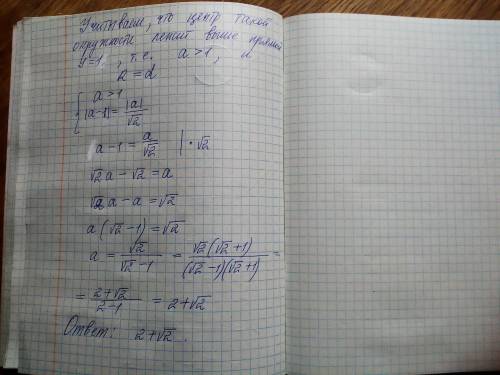 Учитывая, что центр такой
окружности лежит выше прямой
y=1, т.е. a>1, и
R=d
{ a>1
|a-1|=|a|/√2
a-1=a/√2 | ·√2
√2a-√2=a
√2a-a=√2
a(√2-1)=√2
a=√2/(√2-1)=√2(√2+1)/((√2-1)(√2+1))=
=(2+√2)/(2-1)=2+√2
Ответ: 2+√2.